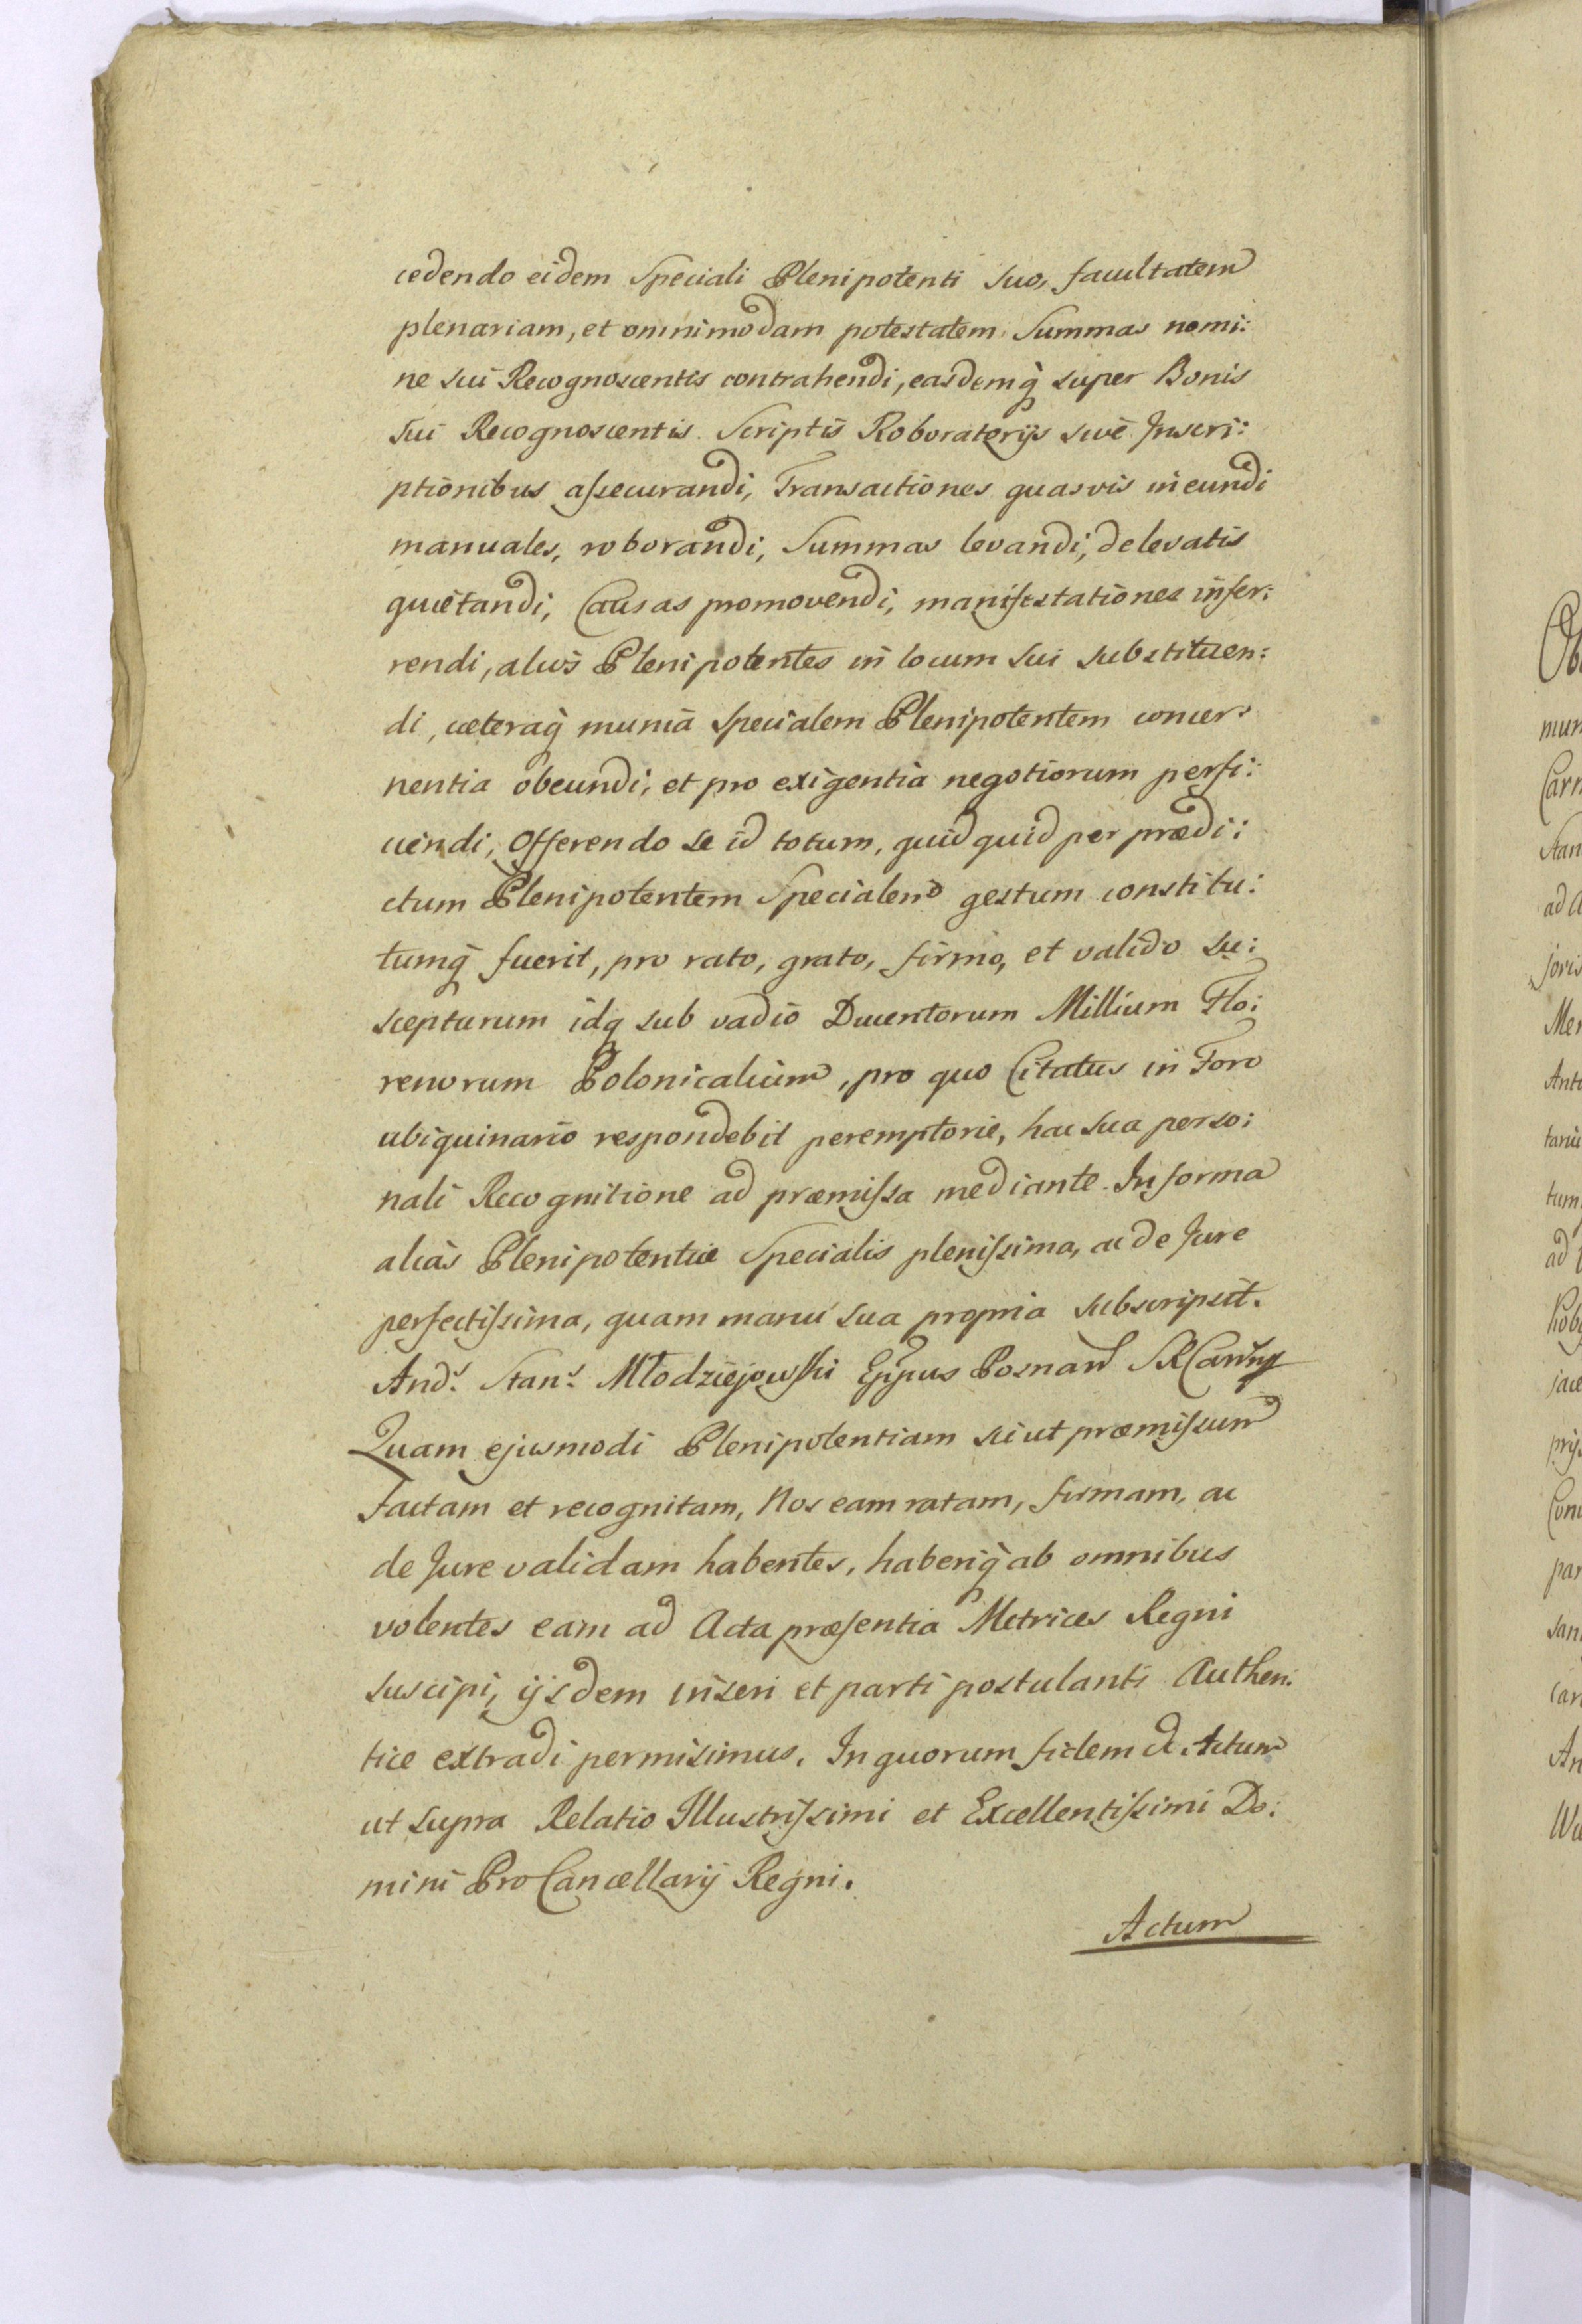 cedendo eidem Speciali Plenipotenti suo, facultatem
plenariam, et omnimodam potestatem Summas nomi:
ne sui Recognoscentis contrahendi, easdemq̀ super Bonis
sui Recognoscentis Scriptis Roboratorijs sive Inscri:
ptionibus aſsecurandi, Transactiones quasvis ineundi
manuales, roborandi, Summas levandi, de levatis
quietandi, Causas promovendi, manifestationes infer:
rendi, alios Plenipotentes in locum sui substituen:
di, ceteraq̀ munia specialem Plenipotentem concer:
nentia obeundi, et pro exigentia negotiorum perfi:
ciendi, Offerendo se id totum, quidquid per prædi:
ctum Plenipotentem Specialem gestum constitu:
tumq̀ fuerit, pro rato, grato, firmo, et valido su:
scepturum idq sub vadio Ducentorum Millium Flo:
renorum Polonicalium, pro quo Citatus in Foro
ubiquinario respondebit peremptorie, hac sua perso:
nali Recognitione ad præmiſsa mediante. In forma
alias Plenipotentiæ Specialis pleniſsima, ac de Jure
perfectiſsima, quam manu sua propria subscripsit.
And: Stan: Młodzieiowski Eppus Posnań
Quam ejusmodi Plenipotentiam sicut præmiſsum
Factam et recognitam, Nos eam ratam, firmam, ac
de Jure validam habentes, haberiq̀ ab omnibus
volentes eam ad Acta præsentia Metrices Regni
suscipi, ijsdem inseri et parti postulanti Authen:
tice extradi permisimus. In quorum fidem &. Actum
ut supra Relatio Illustriſsimi et Excellentiſsimi Do:
mini ProCancellarij Regni.
Actum